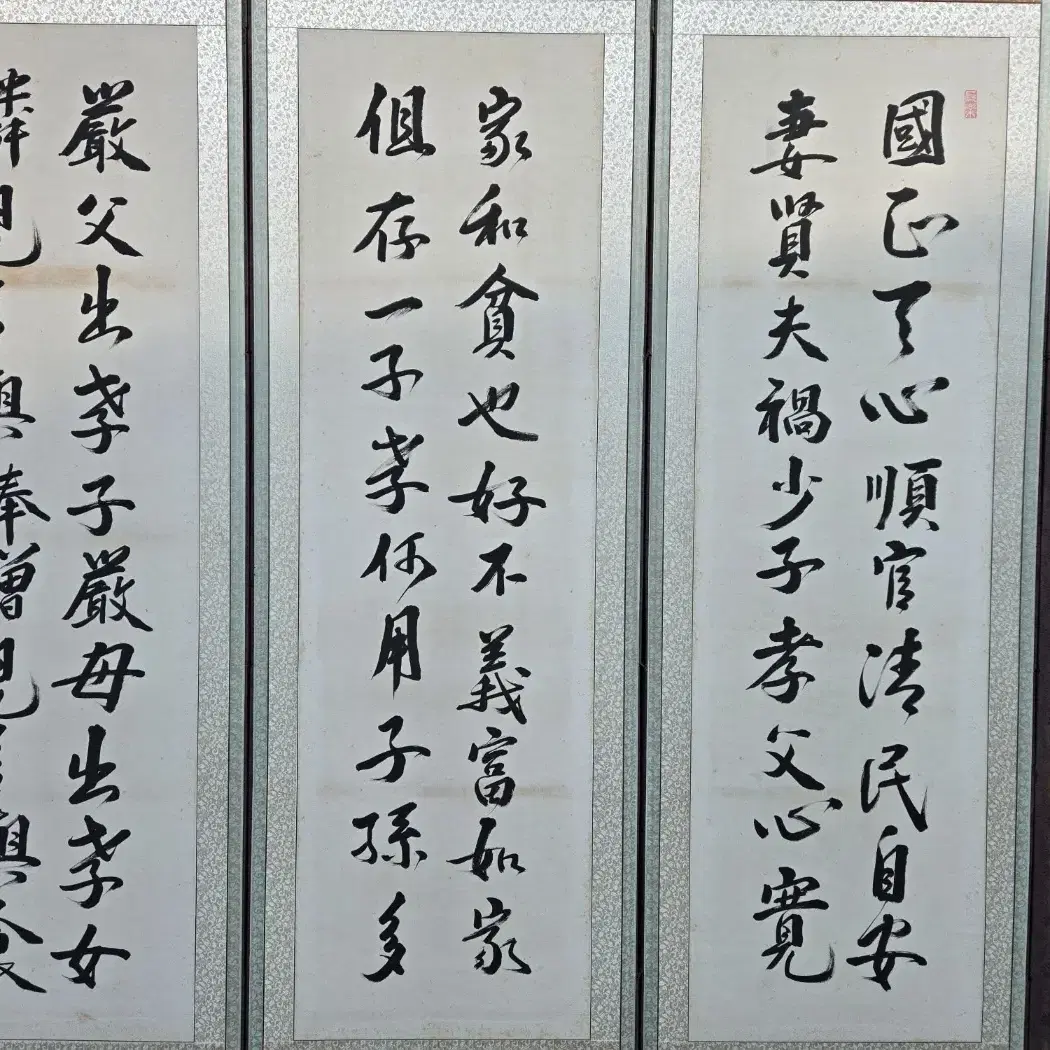 國正天心順官清民自安
妻賢夫禍少子孝父心寬
家和貧也好不義富如家
但存一子孝何用子孫多
嚴父出孝子嚴母出孝女
憐兒多與棒憎兒多與食